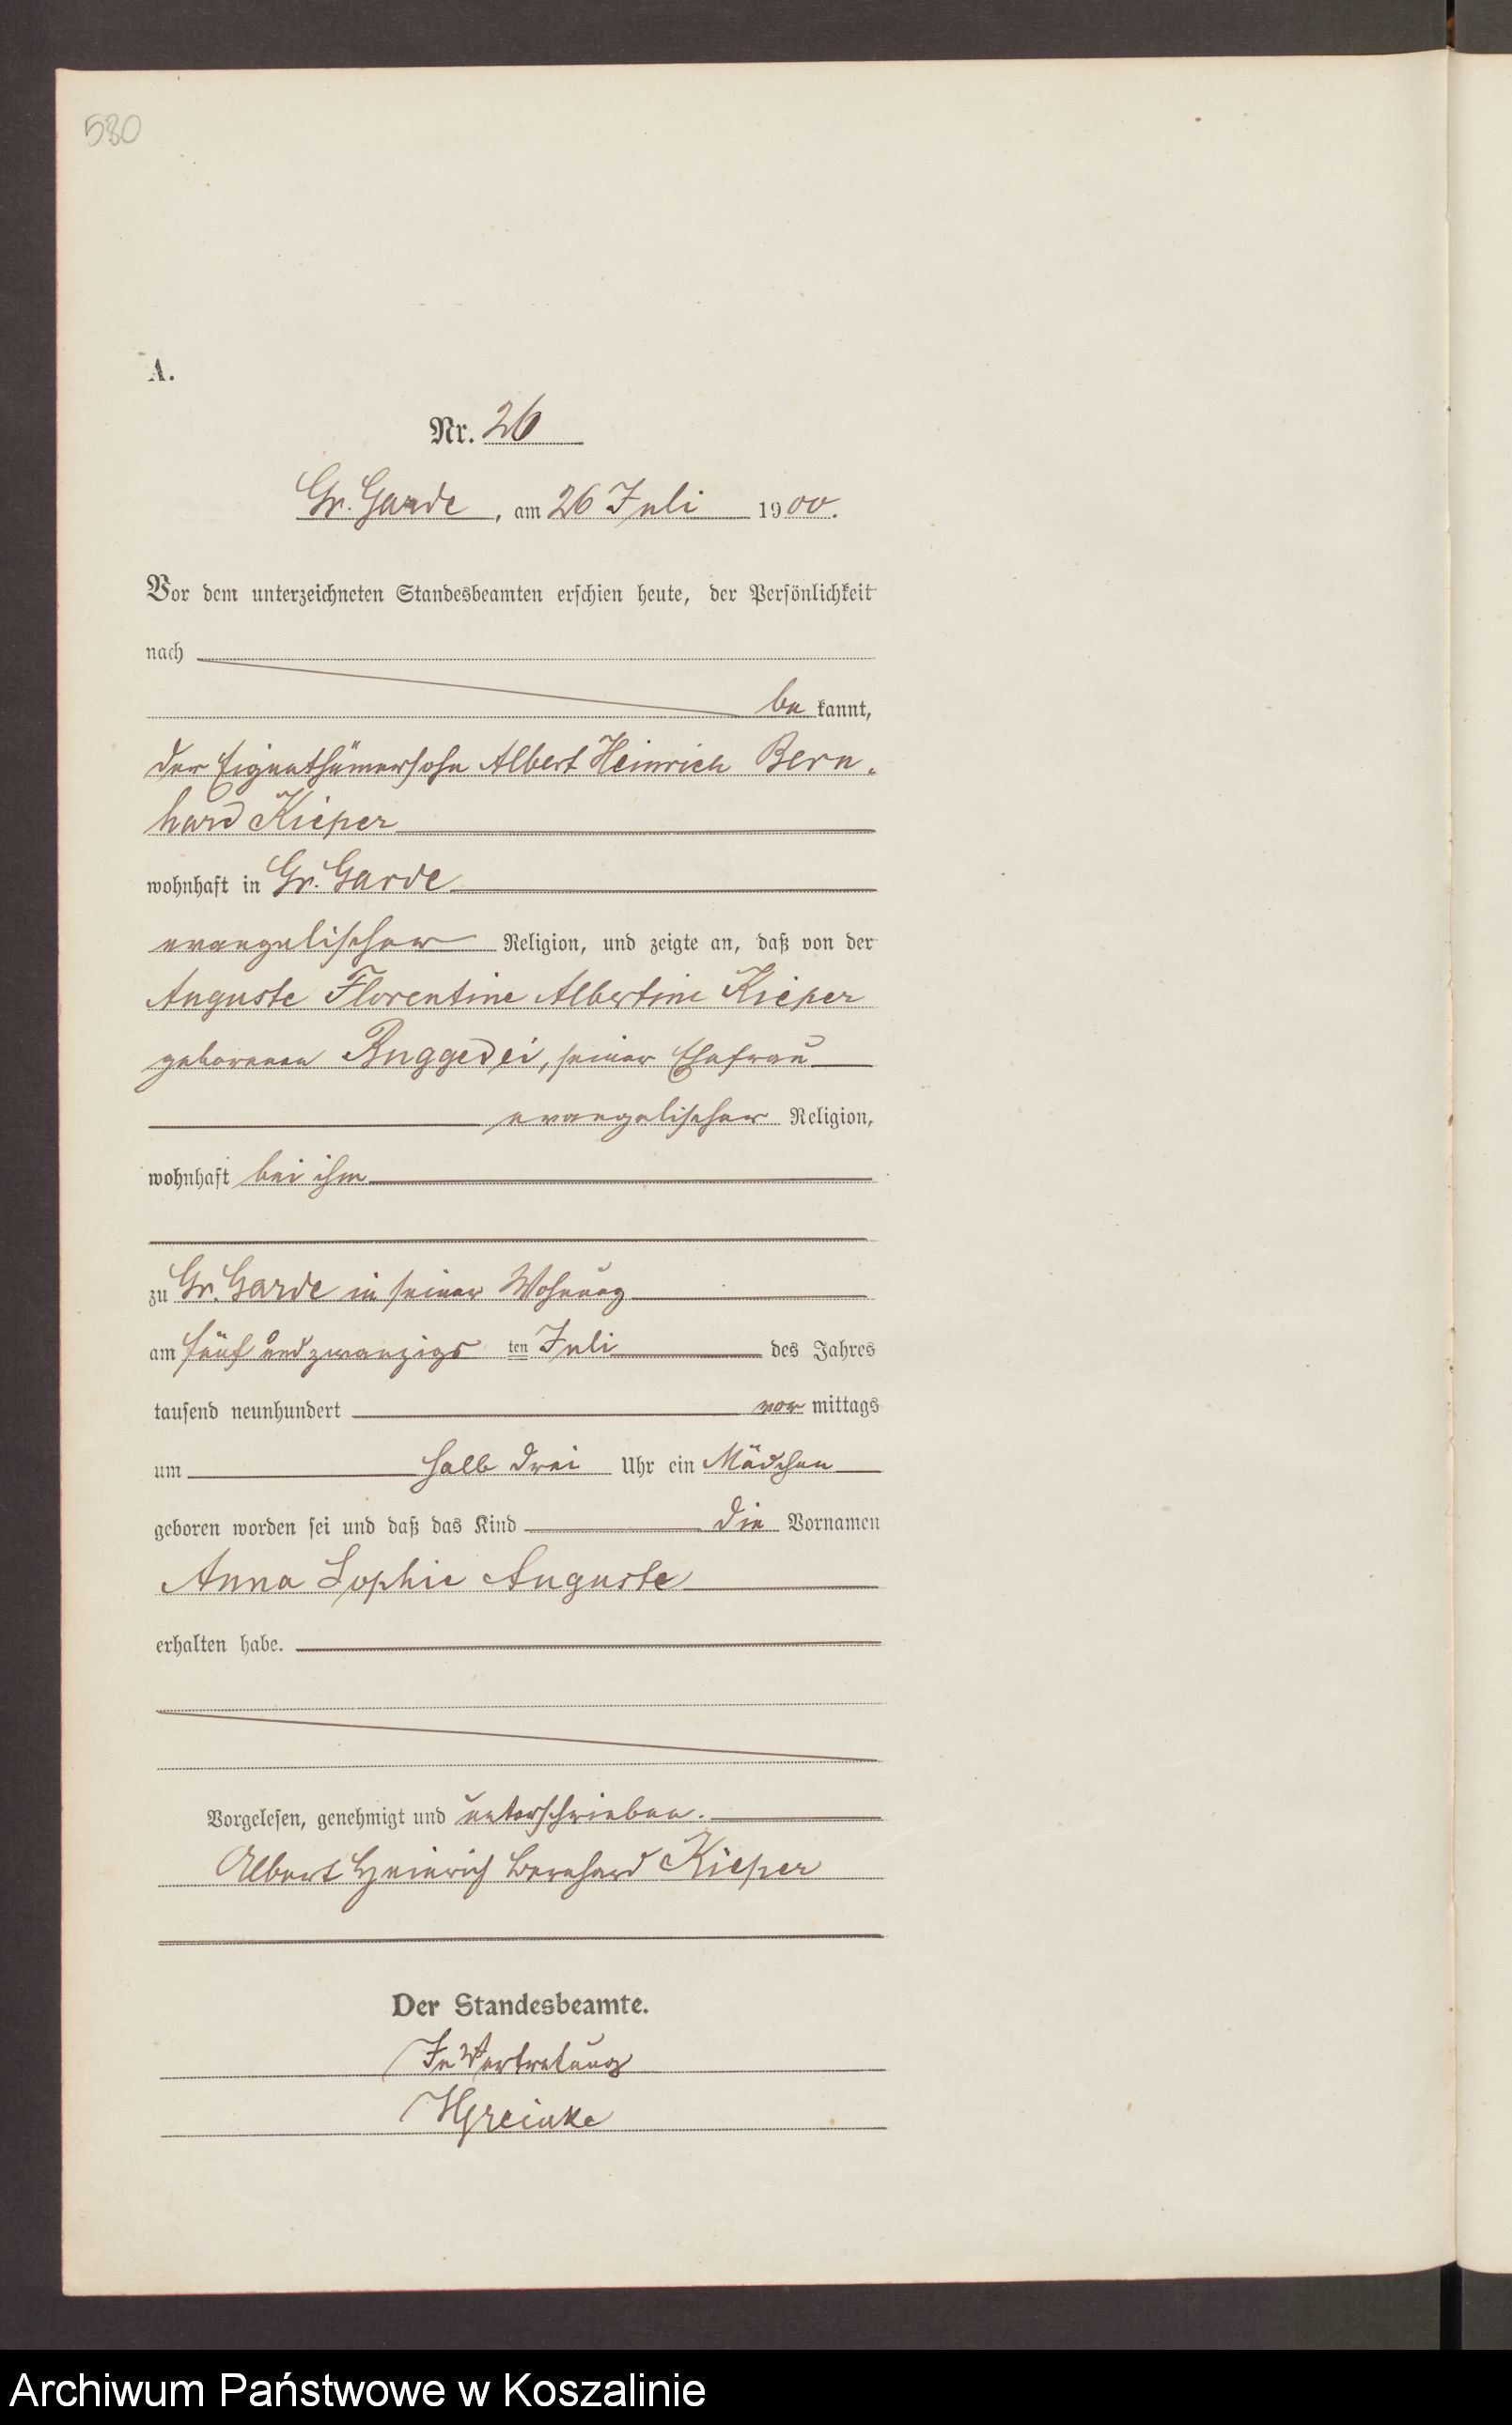 580
A.
Nr. 26
Gr. Garde, am 26 Juli 1900.
Vor dem unterzeichneten Standesbeamten erschien heute, der Persönlichkeit
nach
be kannt,
der Eigenthümersohn Albert Heinrich Bern-
hard Kieper
wohnhaft in Gr. Garde
evangelischer Religion, und zeigte an, daß von der
Auguste Florentine Albertine Kieper
geborenen Ruggedei, seiner Ehefrau
evangelischer Religion,
wohnhaft bei ihm
zu Gr. Garde in seiner Wohnung
am fünf und zwanzigs ten Juli des Jahres
tausend neunhundert vor mittags
um halb drei Uhr ein Mädchen
geboren worden sei und daß das Kind die Vornamen
Anna Sophie Auguste
erhalten habe.
Vorgelesen, genehmigt und unterschrieben.
Albert Heinrich Bernhard Kieper
Der Standesbeamte.
In Vertretung
HGreinke
Archiwum Państwowe w Koszalinie